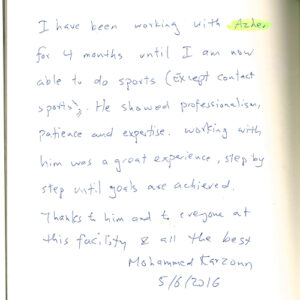 I have been working with Azher
for 4 months until I am now
able to do sports (Except contact
sports). He showed professionalism,
patience and expertise. working with
him was a great experience, step by
step until goals are achieved.
Thanks to him and to everyone at
this facility & all the best
Mohammed
5/6/2016